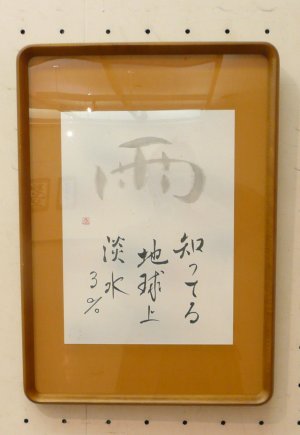 雨
知ってる
地球上
淡水
3%